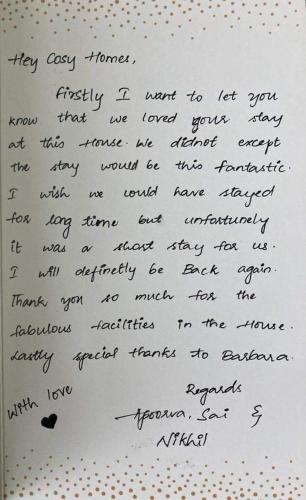 Hey Cosy Homes,
Firstly I want to let you
know that we loved your stay
at this House. We didnot except
the stay would be this fantastic.
I wish we could have stayed
for long time but unfortunely
it was a short stay for us.
I will definetly be Back again.
Thank you so much for the
fabulous facilities in the House.
Lastly special thanks to Barbara.
With love
Regards
Apoorva, Sai &
Nikhil